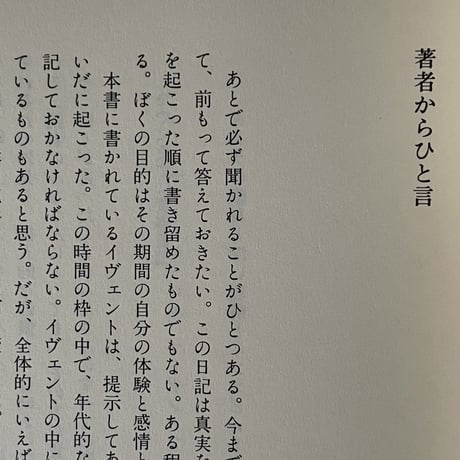 著者からひと言
あとで必ず聞かれることがひとつある。今まで
て、前もって答えておきたい。この日記は真実な
を起こった順に書き留めたものでもない。ある程
る。ぼくの目的はその期間の自分の体験と感情と
本書に書かれているイヴェントは、提示してあ
いだに起こった。この時間の枠の中で、年代的な
記しておかなければならない。イヴェントの中に
ているものもあると思う。だが、全体的にいえば